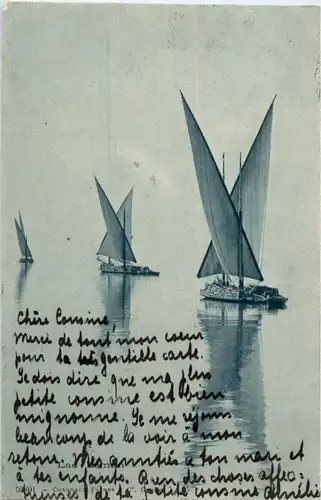 Chère Cousine
Merci de tout mon coeur
pour ta très gentille carte.
Je dois dire que ma plus
petite cousine est bien
mignonne. Je me réjouis
beaucoup de la voir à mon
retour. Mes amitiés à ton mari et
à tes enfants. Bien des choses affec-
tueuses de ta petite cousine Amélie